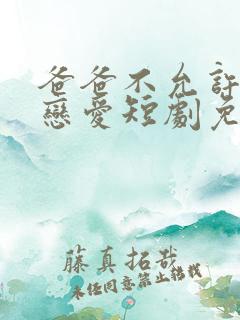 爸爸不允許
戀愛短劇免
藤真拓哉
未經同意禁止轉載